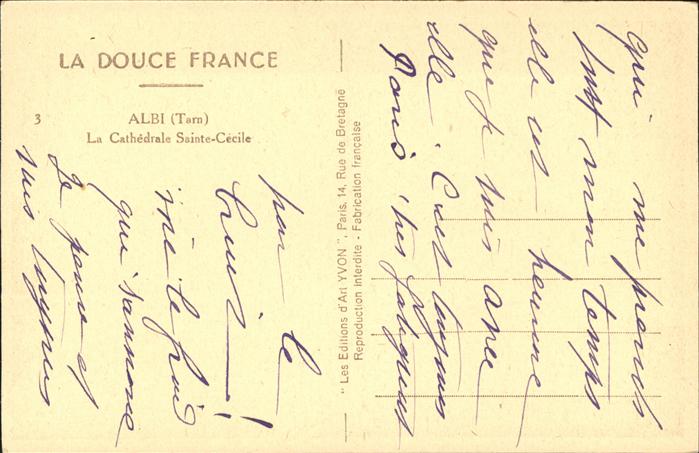 LA DOUCE FRANCE
3
ALBI (Tarn)
La Cathédrale Sainte-Cécile
" Les Editions d'Art YVON ", Paris, 14, Rue de Bretagne
Reproduction Interdite - Fabrication française
qui me prends
tout mon temps
elle est heureuse
que je suis avec
elle C'est toujours
Paris très fatiguant
par le
bruit !
mé le froid
que s'annonce
Je pense et
suis toujours